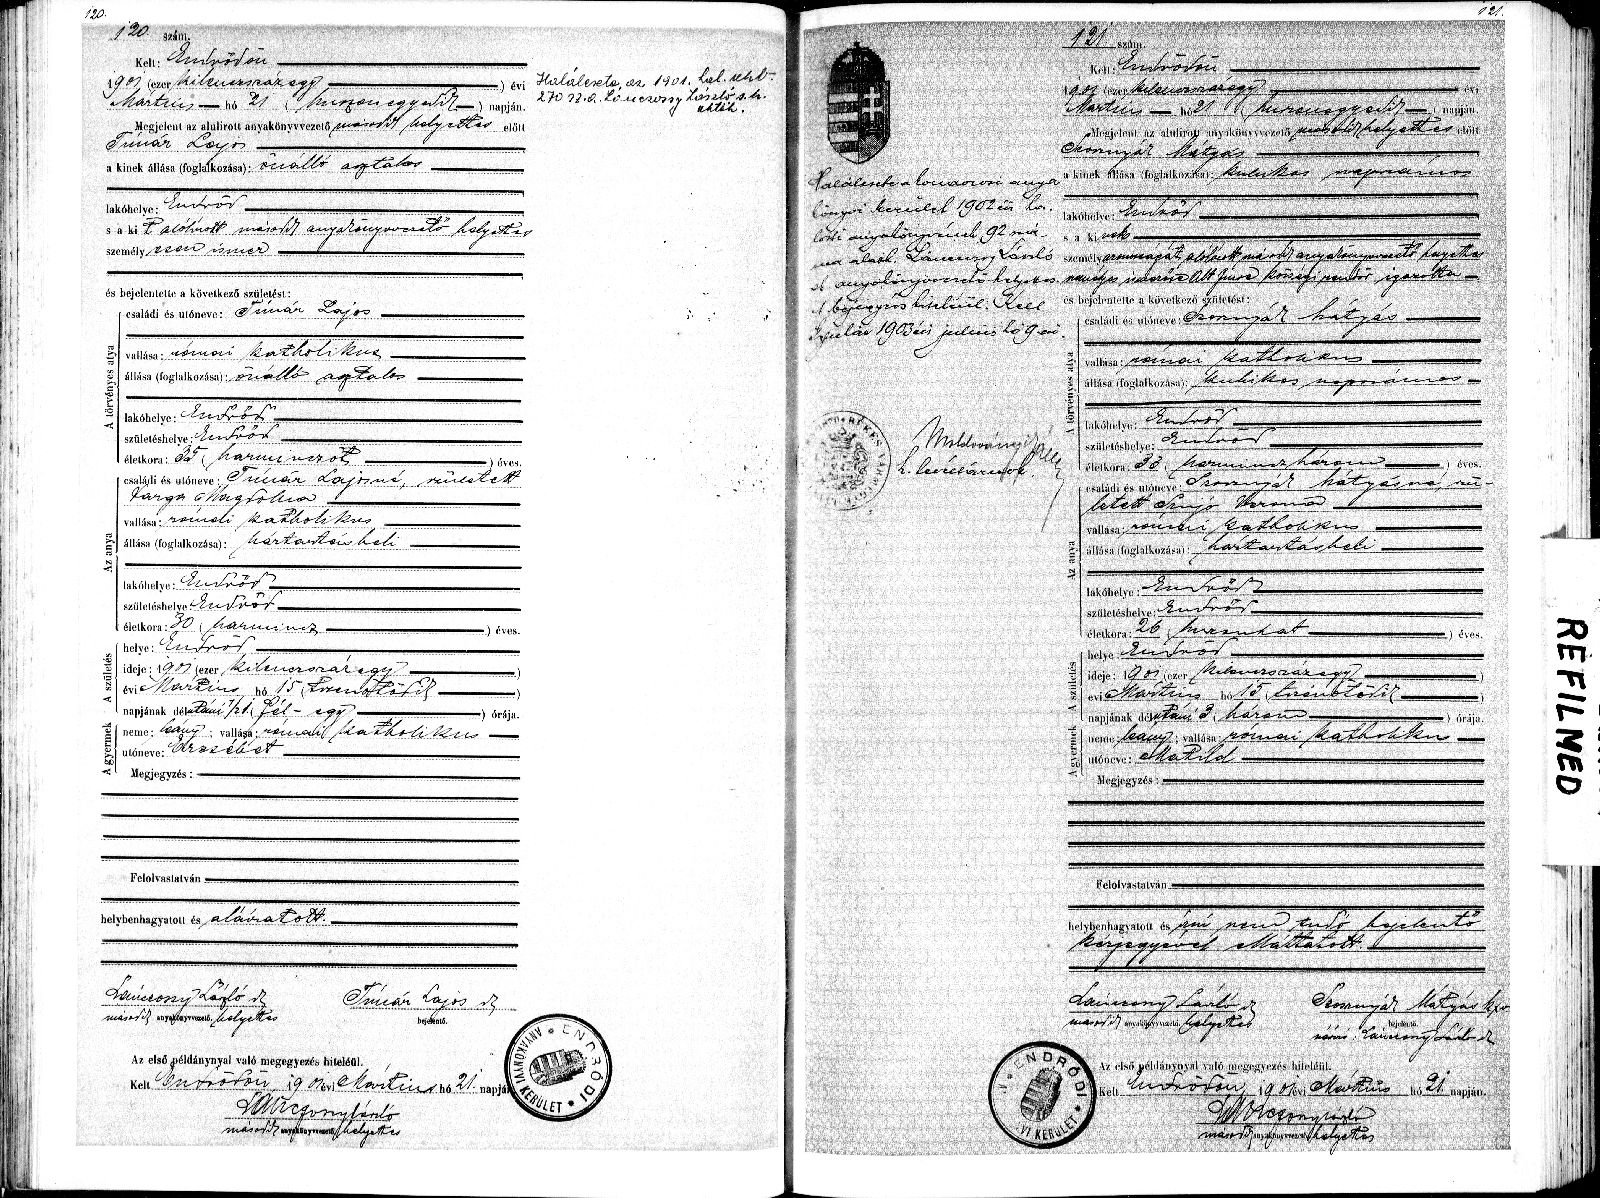 120.
120 szám.
Kelt: Endrődön
1901 (ezer kilenczszáz egy) évi
Mártius hó 21 (huszonegyedik) napján.
Megjelent az alulirott anyakönyvvezető második helyettes előtt
Tímár Lajos
a kinek állása (foglalkozása): önálló asztalos
lakóhelye: Endrőd
s a ki t alólirott második anyakönyvvezető helyettes
személyesen ismer
és bejelentette a következő születést:
A törvényes atya
családi és utóneve: Tímár Lajos
vallása: római katholikus
állása (foglalkozása): önálló asztalos
lakóhelye: Endrőd
születéshelye: Endrőd
életkora: 35 (harminczöt) éves.
Az anya
családi és utóneve: Tímár Lajosné, született
Varga Magdolna
vallása: római katholikus
állása (foglalkozása): háztartásbeli
lakóhelye: Endrőd
születéshelye Endrőd
életkora: 30 (harmincz) éves.
A születés
helye: Endrőd
ideje: 1901 (ezer kilenczszáz egy)
évi Mártius hó 15 (tizenötödik)
napjának délutáni 1/21 (fél-egy) órája.
A gyermek
neme: leány; vallása: római katholikus
utóneve: Erzsébet
Megjegyzés:
Felolvastatván
helybenhagyatott és aláiratott.
Lánczony László sk
második anyakönyvvezető. helyettes
Tímár Lajos sk
bejelentő.
Az első példánynyal való megegyezés hiteléül.
Kelt Endrődön 1901 évi Mártius hó 21. napján
Lánczony László
második anyakönyvvezető helyettes
ENDRŐDI ANYAKÖNYVI KERÜLET
Halálesete, az 1901. hal.
270
Lánczony László s. k.
121.
121 szám.
Kelt: Endrődön
1901 (ezer kilenczszáz egy) évi
Mártius hó 21 (huszonegyedik) napján.
Megjelent az alulirott anyakönyvvezető második helyettes előtt
Szornyák Mátyás
a kinek állása (foglalkozása): kubikos napszámos
lakóhelye: Endrőd
s a kinek
személyazonosságát, alólirott második anyakönyvvezető helyettes
Imre községi rendőr igazolta
és bejelentette a következő születést:
A törvényes atya
családi és utóneve: Szornyák Mátyás
vallása: római katholikus
állása (foglalkozása): kubikos napszámos
lakóhelye: Endrőd
születéshelye: Endrőd
életkora: 33 (harminczhárom) éves.
Az anya
családi és utóneve: Szornyák Mátyásné, szü-
letett Verona
vallása: római katholikus
állása (foglalkozása): háztartásbeli
lakóhelye: Endrőd
születéshelye: Endrőd
életkora: 26 (huszonhat) éves.
A születés
helye Endrőd
ideje: 1901 (ezer kilenczszáz egy)
évi Mártius hó 15 (tizenötödik)
napjának délutáni 3 (három) órája.
A gyermek
neme leány; vallása: római katholikus
utóneve: Matild
Megjegyzés:
Felolvastatván
helybenhagyatott és irni nem tudó bejelentő
kézjegyével elláttatott.
Lánczony László sk
második anyakönyvvezető. helyettes
Szornyák Mátyás
bejelentő.
Lánczony László sk
Az első példánynyal való megegyezés hiteléül.
Kelt Endrődön 1901 évi Mártius hó 21 napján.
Lánczony László
második anyakönyvvezető helyettes
ENDRŐDI KERÜLET
Halálesete a
könyvi kerület 1902 évi ha-
lotti anyakönyvének 92
alatt. Lánczony László
anyakönyvvezető helyettes
bejegyzés hiteléül. Kelt
Gyulán 1903 évi julius hó 9 én
BÉKÉS
REFILMED